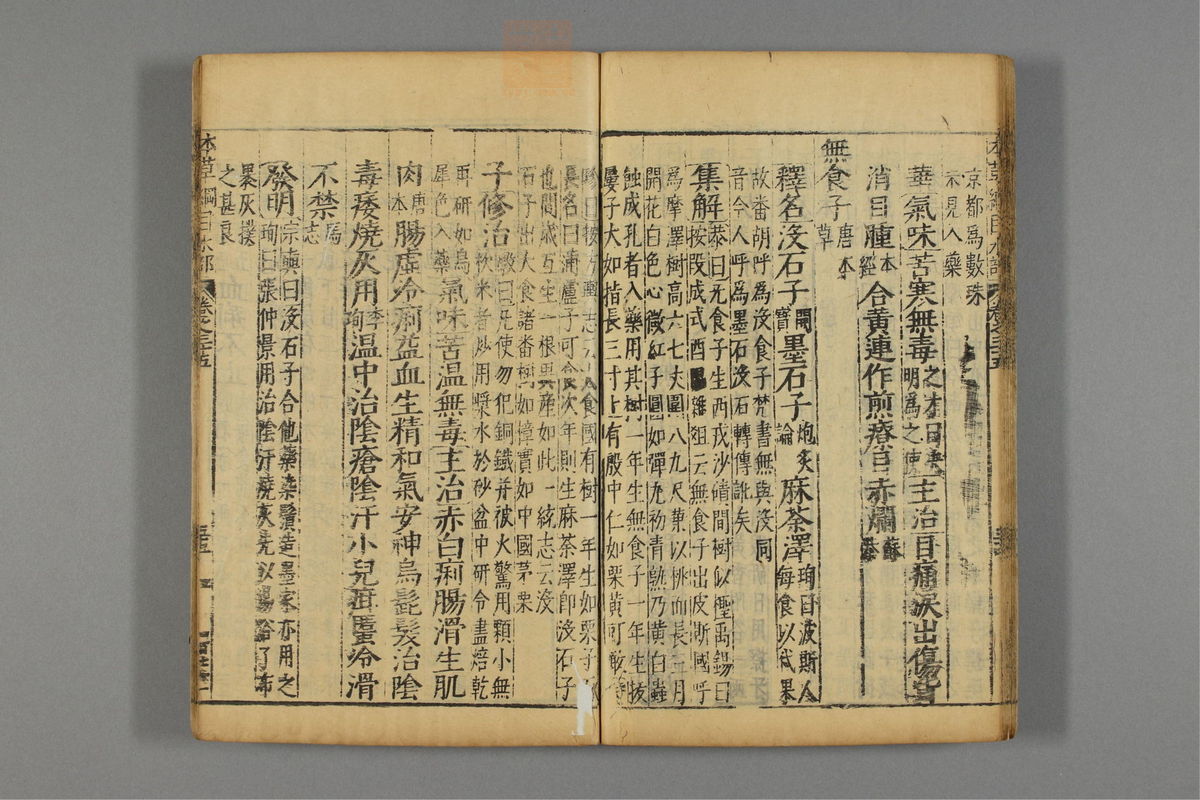 京都為數珠
未見入藥
華氣味苦寒無毒之才曰決明為之使主治目痛淚出傷眥
消目腫本經合黃連作煎療目赤爛蘇恭
無食子唐本草
釋名沒石子開寶墨石子炮炙論麻荼澤珣曰波斯人每食以代果
故番胡呼為沒食子梵書無與沒同
音今人呼為墨石沒石轉傳訛矣
集解恭曰無食子生西戎沙磧間樹似檉禹錫曰
按段成式雜俎云無食子出波斯國呼
為摩澤樹高六七丈圍八九尺葉以桃而長三月
開花白色心微紅子圓如彈丸初青熟乃黃白蟲
蝕成孔者入藥用其樹一年生無食子一年生拔
屢子大如指長三寸上有殼中仁如栗黃可噉時
珍曰按方輿志云大食國有樹一年生如栗子
長名曰蒲盧子可食次年則生麻荼澤即沒石子
也間歲互生一根異產如此一統志云沒
石子出大食諸番樹如樟實如中國茅栗
子修治斆曰凡使勿犯銅鐵并被火驚用顆小無
枕米者妙用漿水於砂盆中研令盡焙乾
再研如烏
犀色入藥氣味苦溫無毒主治赤白痢腸滑生肌
肉唐本腸虛冷痢益血生精和氣安神烏髭髮治陰
毒痿燒灰用李珣溫中治陰瘡陰汗小兒疳䘌冷滑
不禁馬志
發明宗奭曰沒石子合他藥染鬚造墨家亦用之
珣曰張仲景用治陰汗燒灰先以湯浴了布
裹灰撲
之甚良
本草綱目木部 卷之三十五